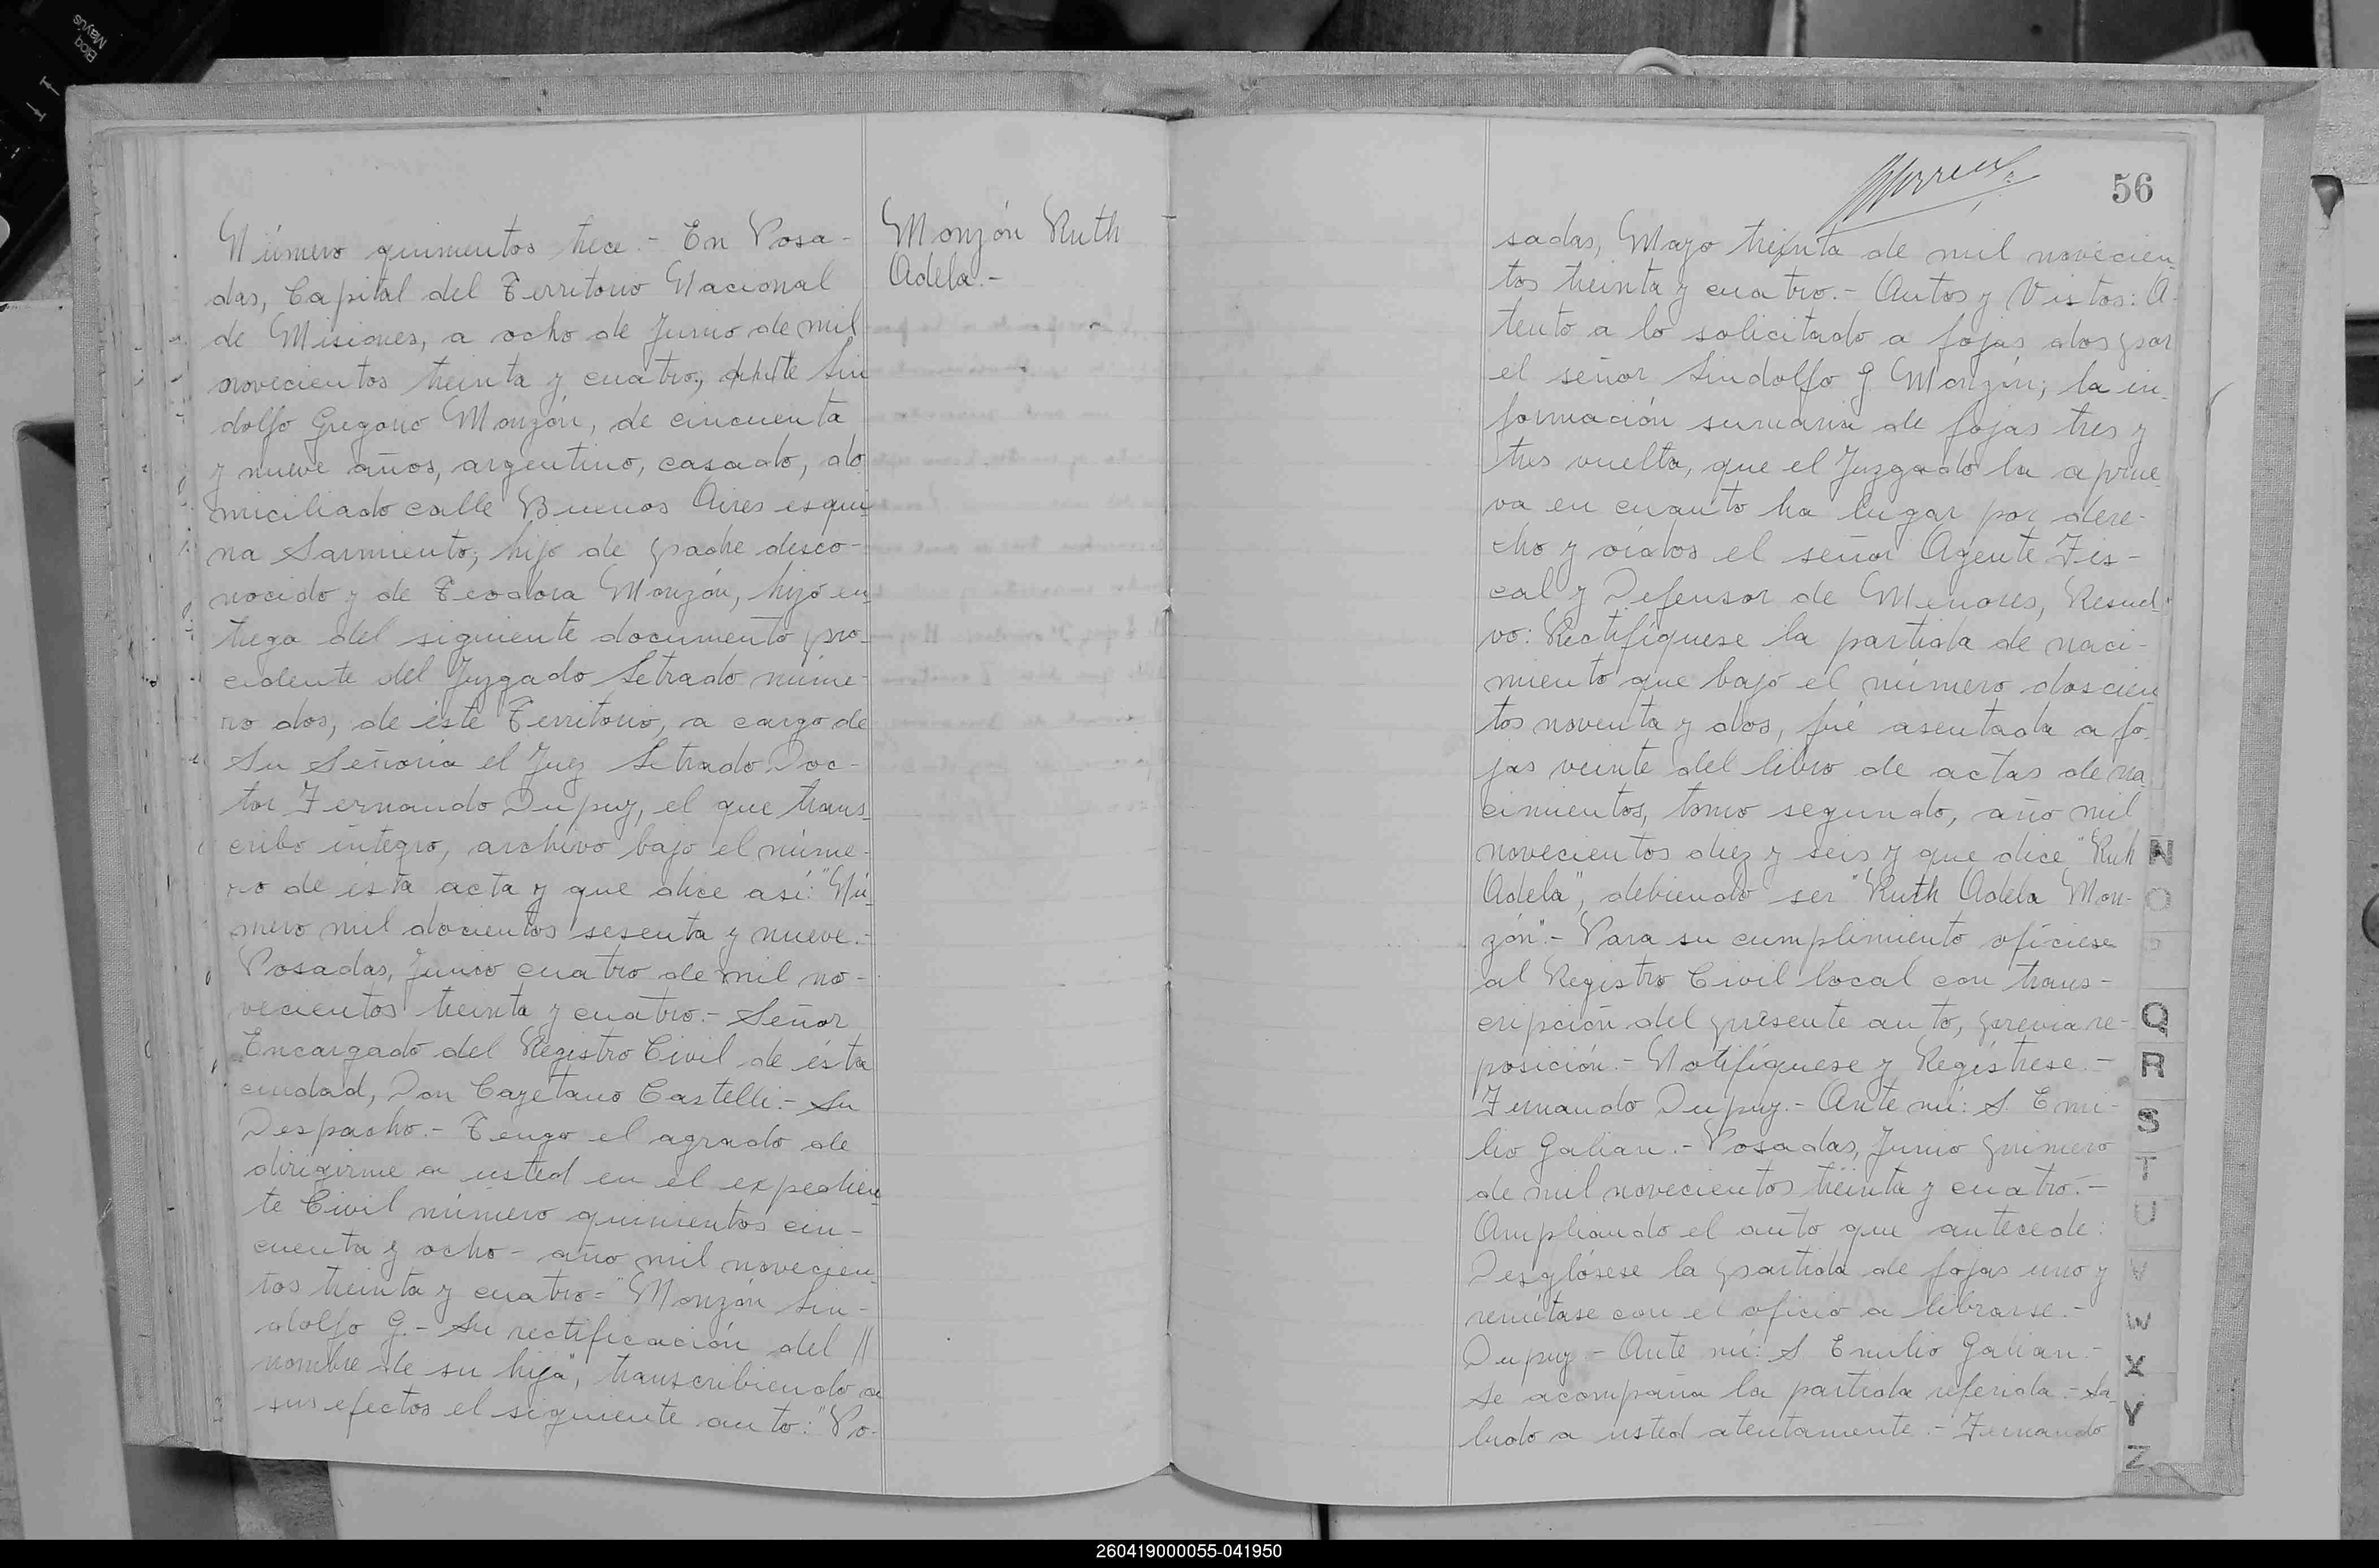 Bloq
Mayús
Número quinientos trece.- En Posa-
das, Capital del Territorio Nacional
de Misiones, a ocho de Junio de mil
novecientos treinta y cuatro, Lin
dolfo Gregorio Monzón, de cincuenta
y nueve años, argentino, casado, do
miciliado calle Buenos Aires esqui
na Sarmiento, hijo de padre desco-
nocido y de Teodora Monzón, hizo en
trega del siguiente documento pro-
cedente del Juzgado Letrado núme-
ro dos, de éste Territorio, a cargo de
Su Señoría el Juez Letrado Doc-
tor Fernando Dupuy, el que trans
cribo íntegro, archivo bajo el núme-
ro de ésta acta y que dice así: "Nú-
mero mil docientos sesenta y nueve.-
Posadas, Junio cuatro de mil no-
vecientos treinta y cuatro.- Señor
Encargado del Registro Civil de ésta
ciudad, Don Cayetano Castelli.- Su
Despacho.- Tengo el agrado de
dirigirme a usted en el expedien
te Civil número quinientos cin-
cuenta y ocho - año mil novecien
tos treinta y cuatro = "Monzón Lin-
dolfo G.- Su rectificación del //
nombre de su hija", transcribiendo a
sus efectos el siguiente auto: "Po-
Monzón Ruth
Adela.-
56
sadas, Mayo treinta de mil novecien
tos treinta y cuatro.- Autos y Vistos: A-
tento a lo solicitado a fojas dos por
el señor Lindolfo G. Monzón; la in-
formación sumaria de fojas tres y
tres vuelta, que el Juzgado la aprue-
va en cuanto ha lugar por dere-
cho y oidos el señor Agente Fis-
cal y Defensor de Menores, Resuel-
vo: Rectifíquese la partida de naci-
miento que bajo el número doscien
tos noventa y dos, fué asentada a fo-
jas veinte del libro de actas de na
cimientos, tomo segundo, año mil
novecientos diez y seis y que dice "Ruh
Adela", debiendo ser "Ruth Adela Mon-
zón".- Para su cumplimiento ofíciese
al Registro Civil local con trans-
cripción del presente auto, previa re-
posición.- Notifíquese y Regístrese.-
Fernando Dupuy.- Ante mí: S. Emi-
lio Galian.- Posadas, Junio primero
de mil novecientos treinta y cuatro.-
Ampliando el auto que antecede:
Desglósese la partida de fojas uno y
remítase con el oficio a librarse.-
Dupuy - Ante mí: S. Emilio Galian.-
Se acompaña la partida referida.- Sa-
ludo a usted atentamente.- Fernando
N
O
P
Q
R
S
T
U
V
W
X
Y
Z
260419000055-041950